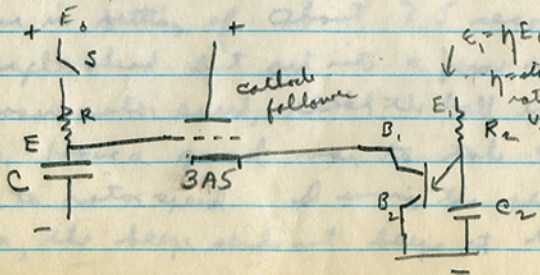 + E₀
+
S
cathode
follower
R
E
C
3A5
-
B₁
B₂
E₁ = η E₀
E₁
R₂
C₂
-